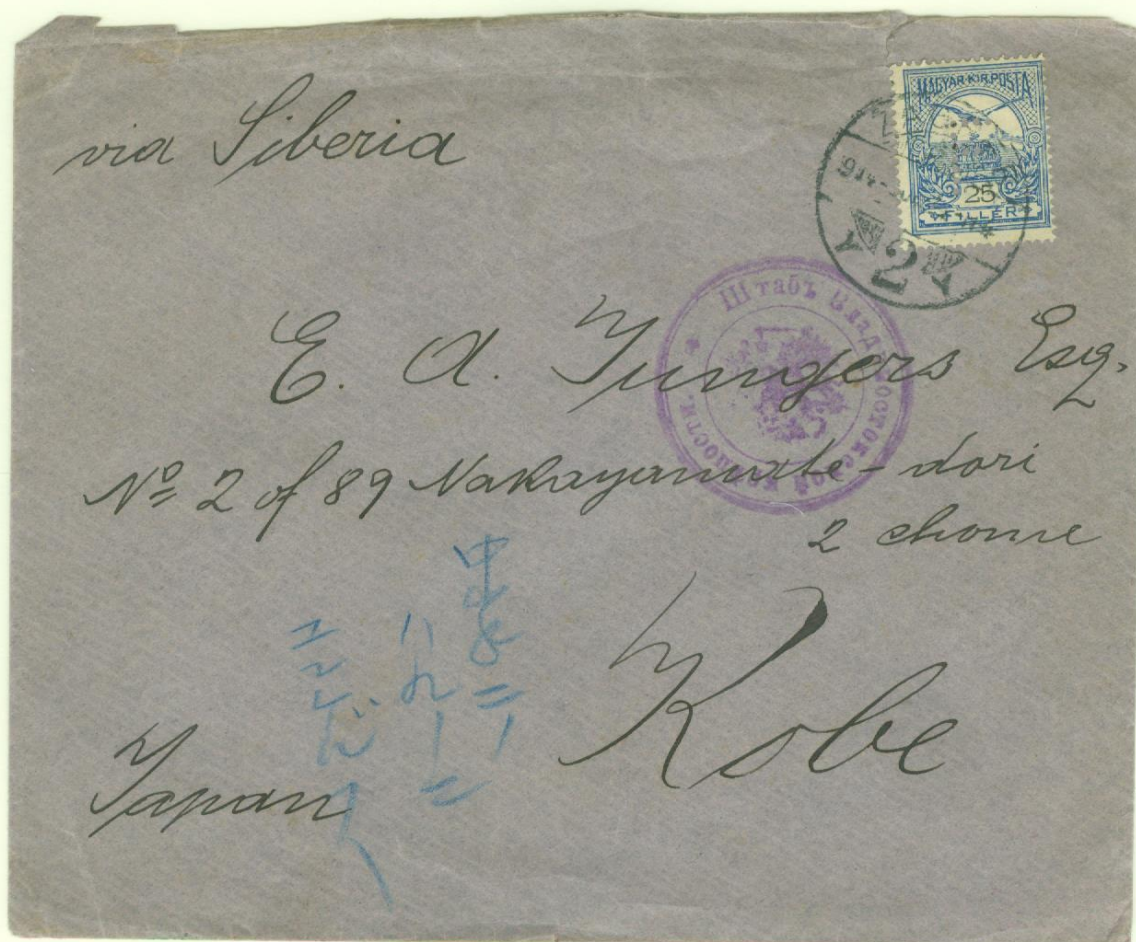 via Siberia
MAGYAR KIR. POSTA
25
FILLÉR
914
2
Штабъ Владивостокской крѣпости.
E. A. Jungers Esq.
No 2 of 89 Nakayamate-dori
2 chome
Kobe
Japan
中山手二ノ
八九ノ二